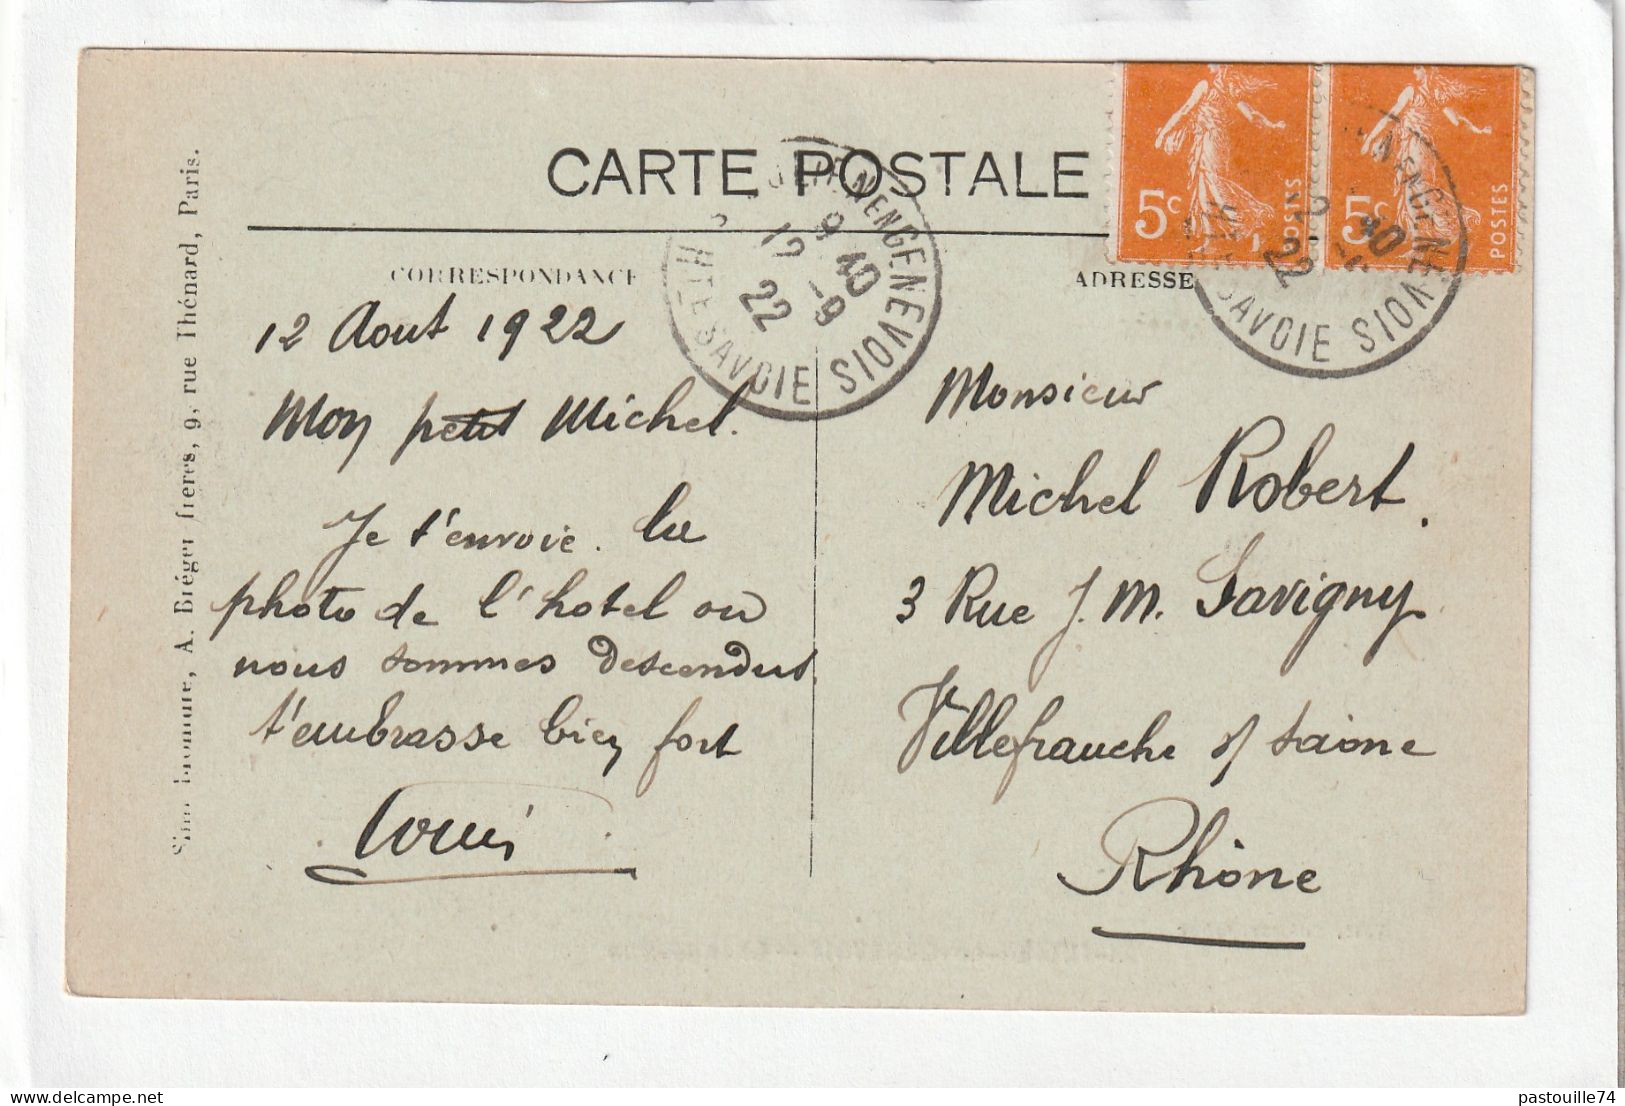 CARTE POSTALE
CORRESPONDANCE
ADRESSE
5c POSTES
5c POSTES
JULIEN EN GENEVOIS
HTE SAVOIE
12 -9
22
EN GENEVOIS
SAVOIE
22
12 Aout 1922
Mon petit Michel.
Je t'envoie. la
photo de l'hotel ou
nous sommes descendus.
t'embrasse bien fort
Louis
Monsieur
Michel Robert.
3 Rue J. M. Savigny
Villefranche s/ Saione
Rhône
bromure, A. Bréger frères, 9, rue Thénard, Paris.
pastouille74